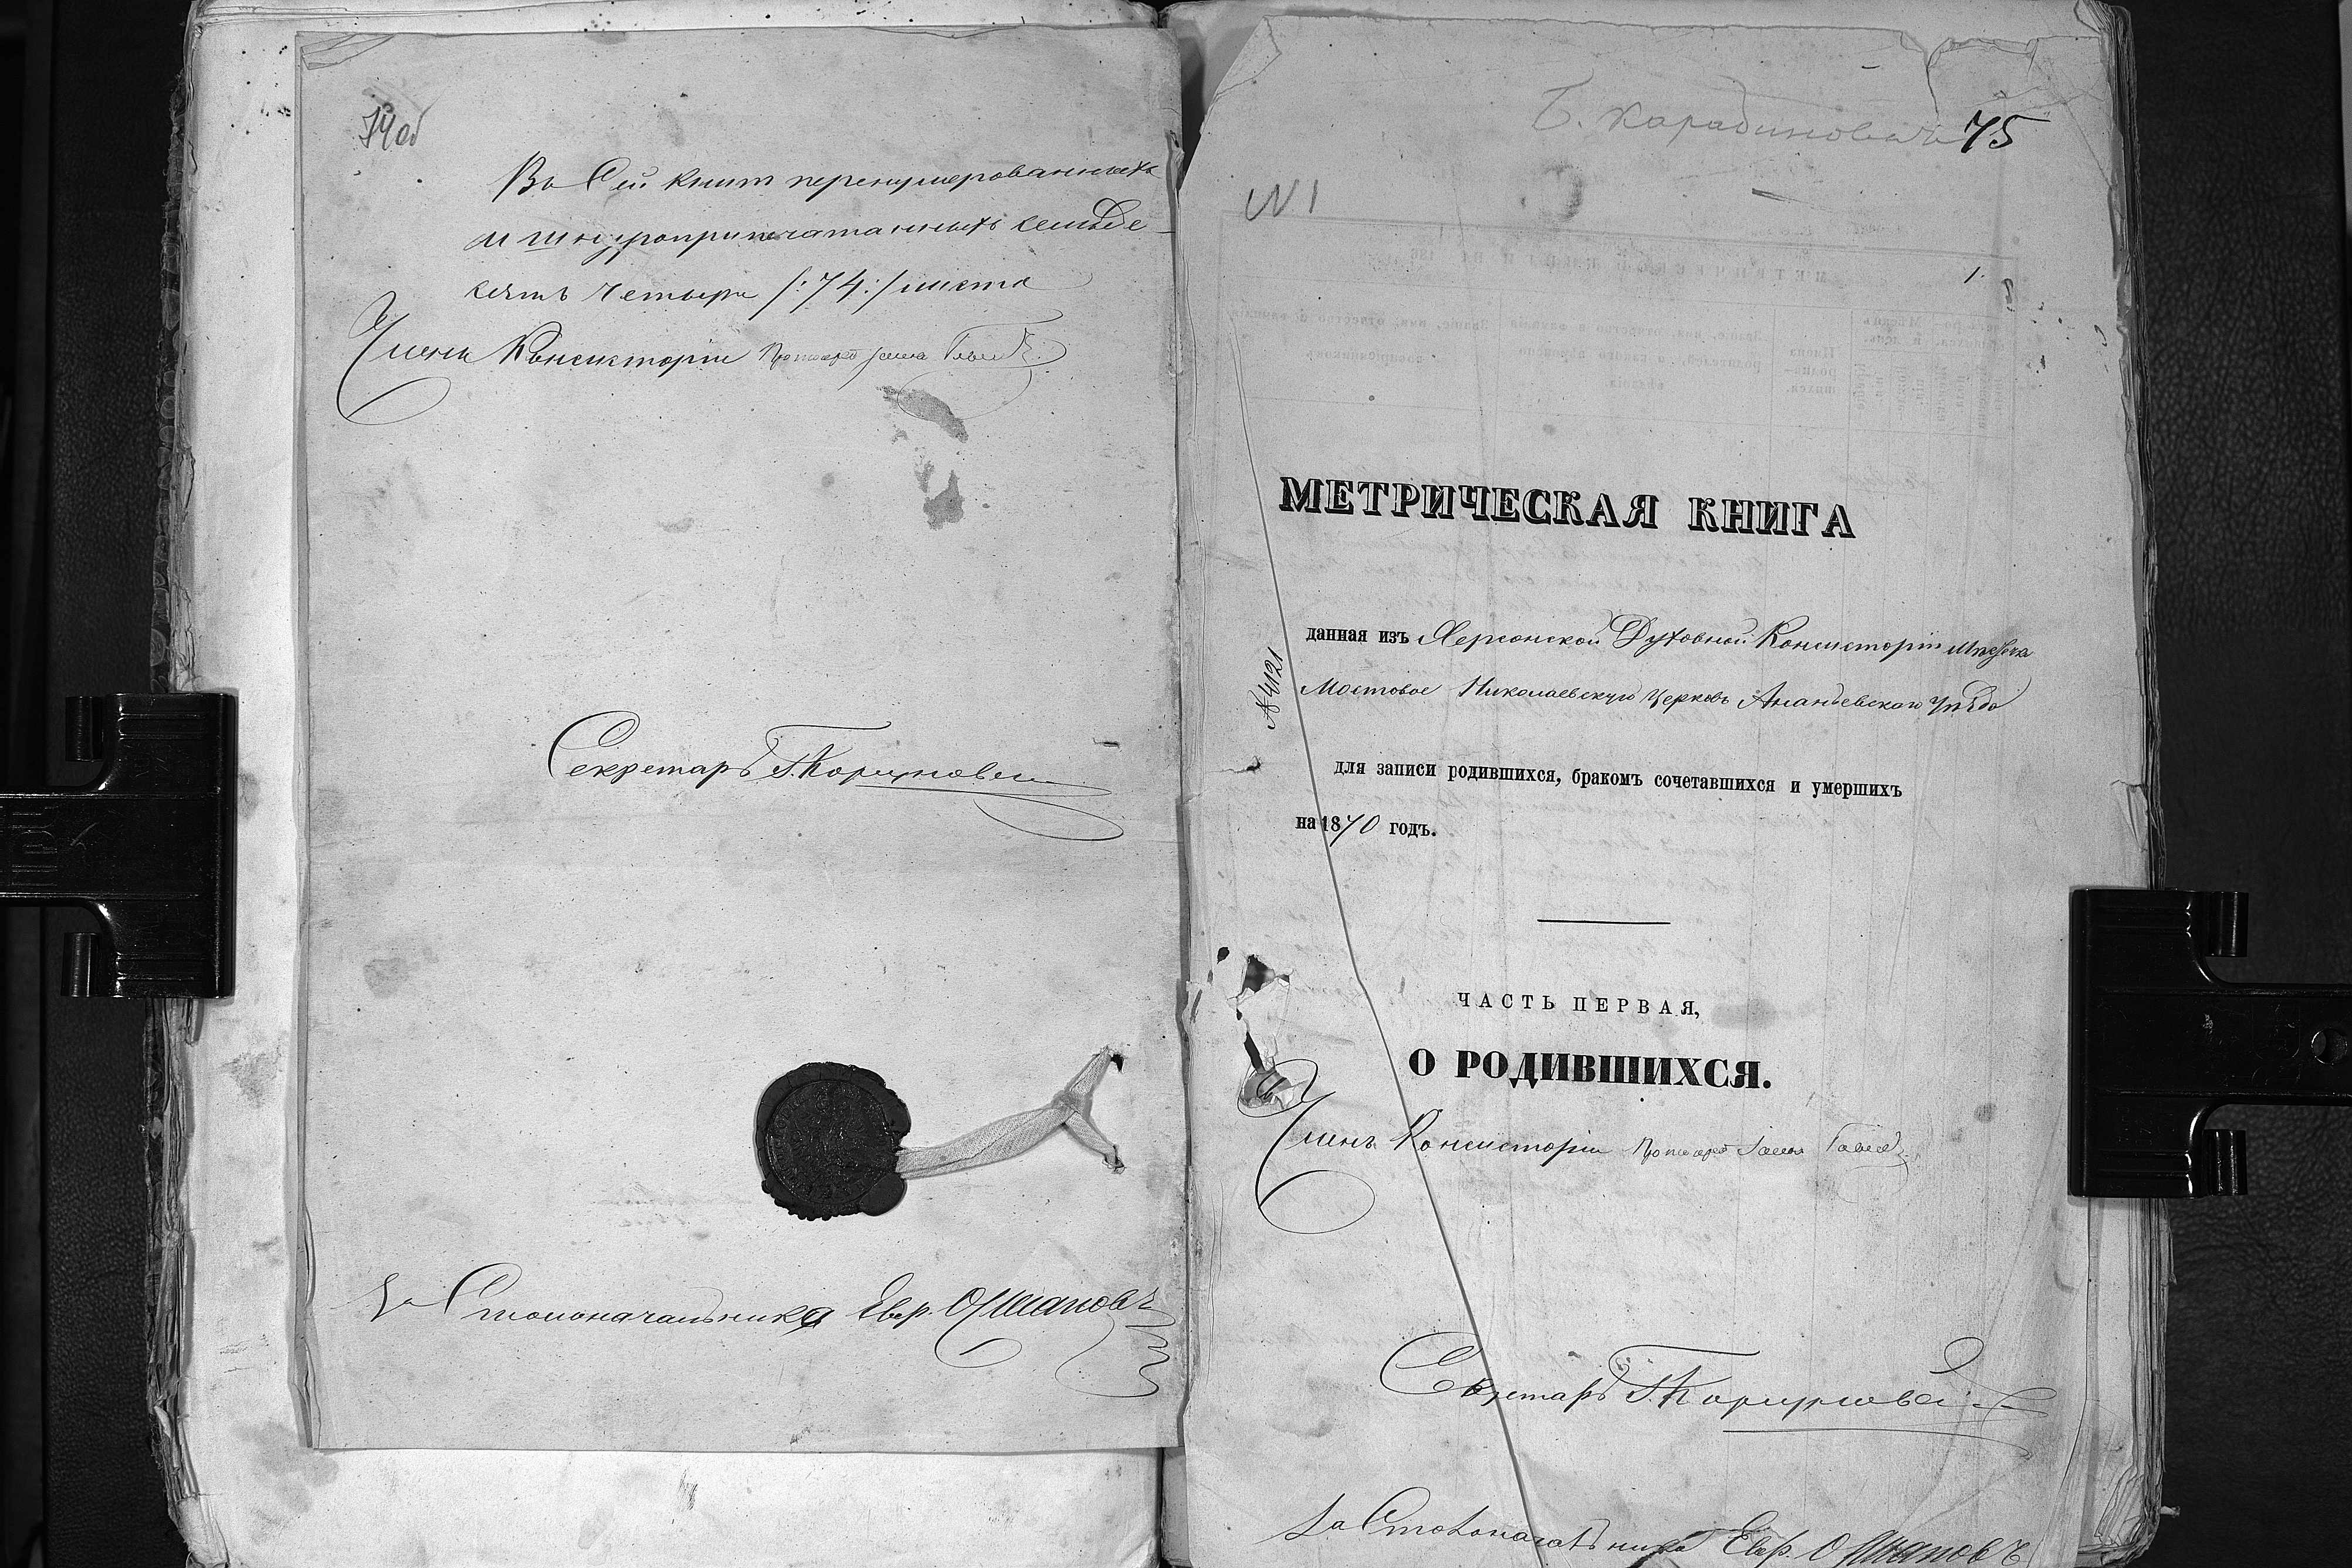 74об
Въ Сей книгѣ перенумерованныхъ
и шнуроприпечатанныхъ семьде-
сятъ четыре /:74:/ листа
Членъ Консисторіи Протоіерей
Секретарь
За Столоначальника Евр.
75
N 1
1.
МЕТРИЧЕСКАЯ КНИГА
N 4121
данная изъ Херсонской Духовной Консисторіи
Мостовое Николаевскую Церковь Ананьевскаго Уѣзда
для записи родившихся, бракомъ сочетавшихся и умершихъ
на 1870 годъ.
ЧАСТЬ ПЕРВАЯ,
О РОДИВШИХСЯ.
Членъ Консисторіи Протоіерей
Секретарь
За Столоначальника Евр.